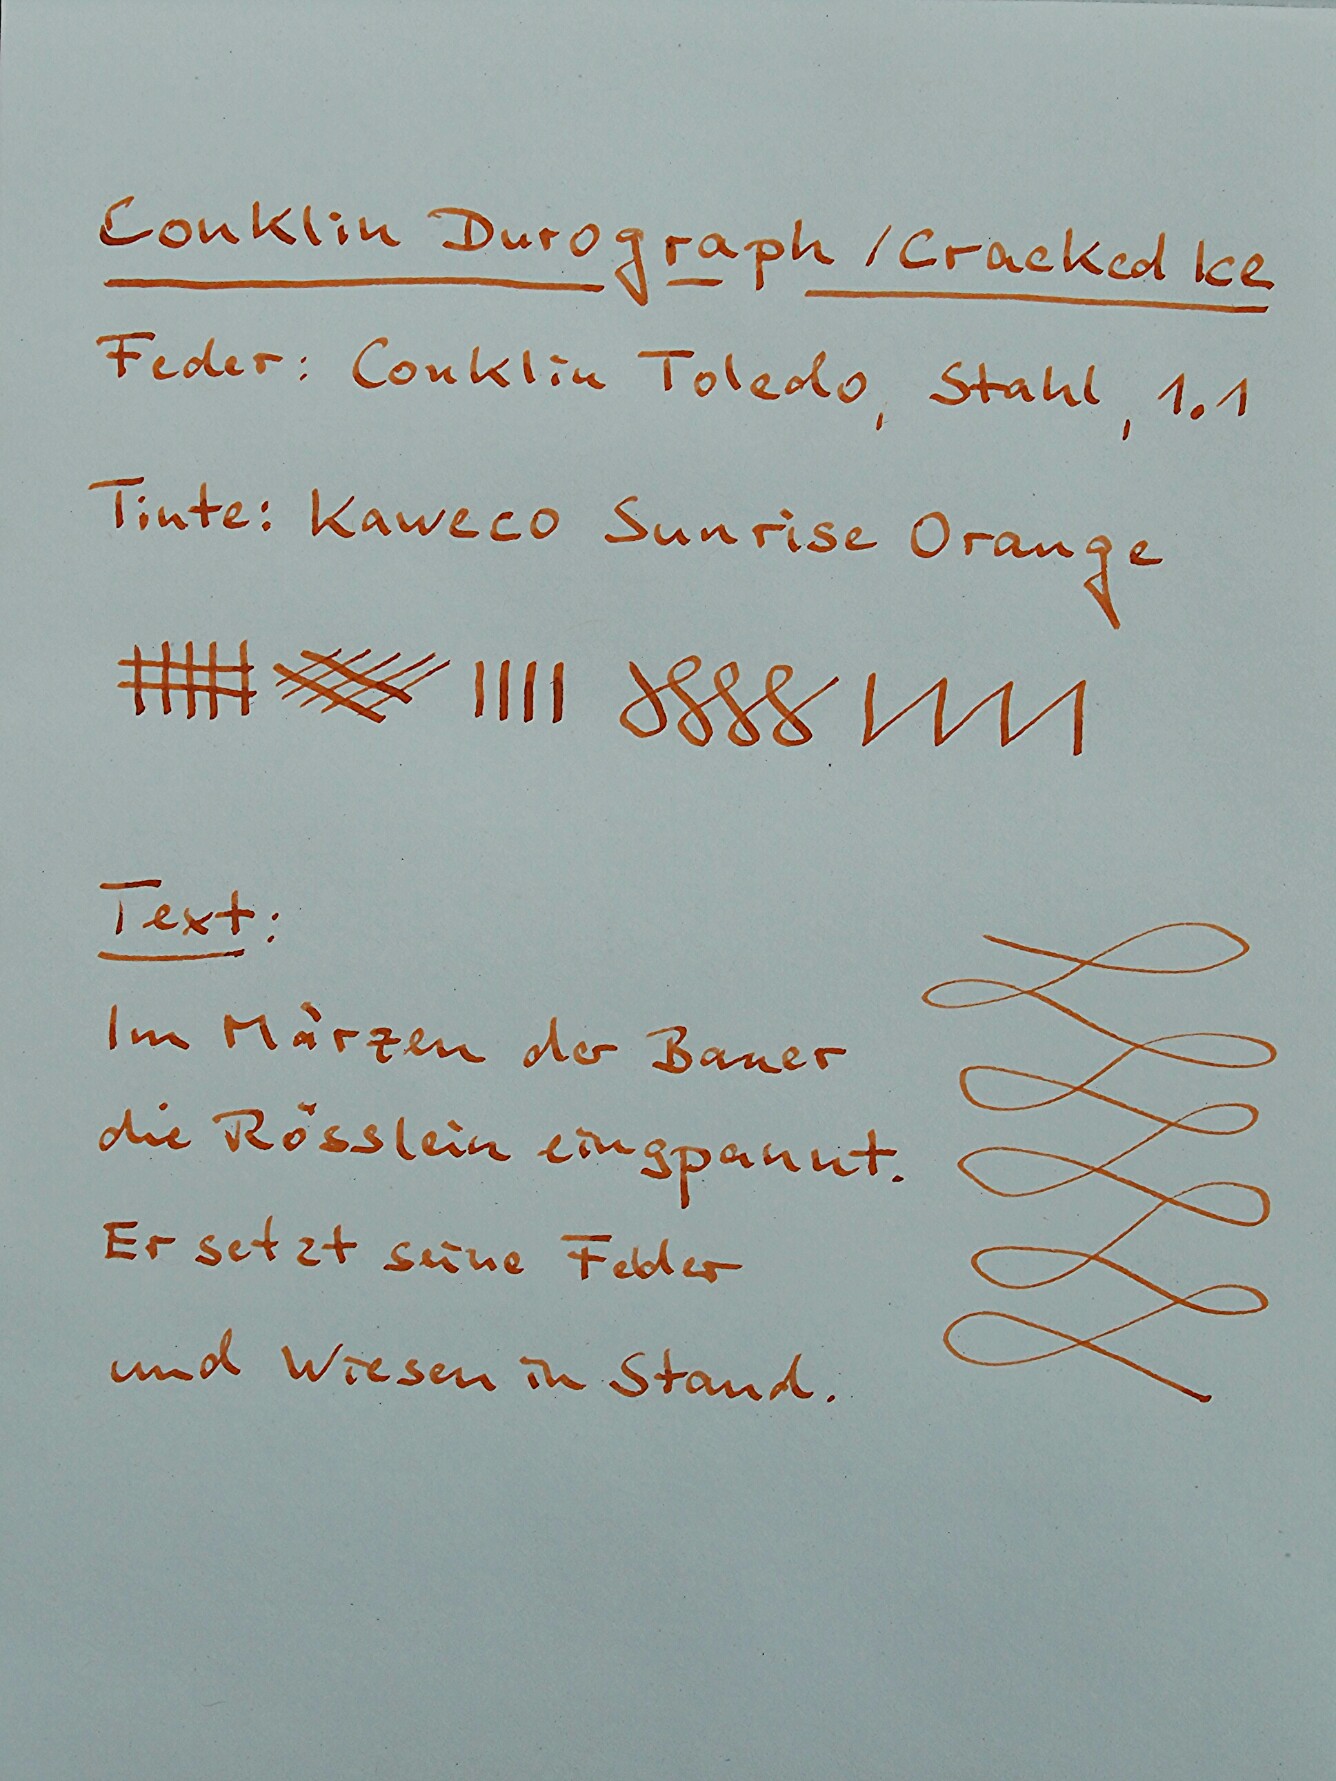 Conklin Durograph / Cracked Ice
Feder: Conklin Toledo, Stahl, 1.1
Tinte: Kaweco Sunrise Orange
Text:
Im Märzen der Bauer
die Rösslein eingpannt.
Er setzt seine Felder
und Wiesen in Stand.